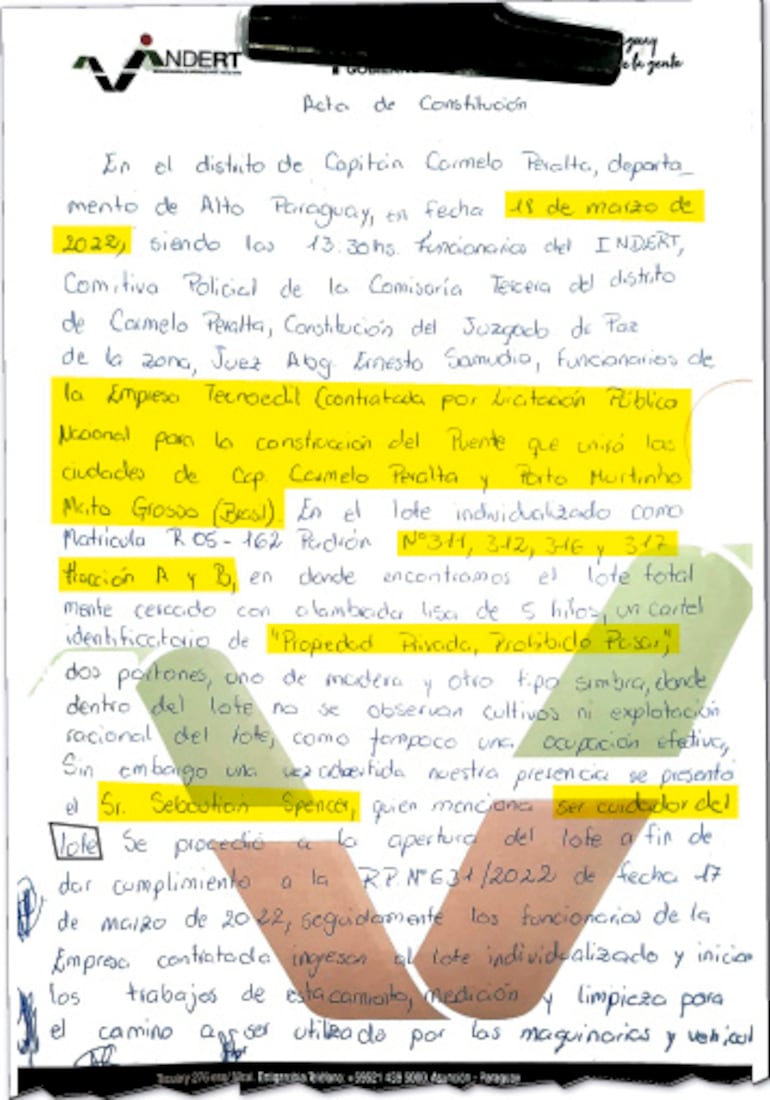 INDERT
Acta de Constitución
En el distrito de Capitán Carmelo Peralta, departa_
mento de Alto Paraguay, en fecha 18 de marzo de
2022, siendo las 13:30hs. funcionarios del INDERT,
Comitiva Policial de la Comisaría Tercera del distrito
de Carmelo Peralta, Constitución del Juzgado de Paz
de la zona, Juez Abg. Ernesto Samudio, funcionarios de
la Empresa Tecnoedil (contratada por Licitación Pública
Nacional para la construcción del Puente que unirá las
ciudades de Cap. Carmelo Peralta y Porto Murtinho
Mato Grosso (Brasil). En el lote individualizado como
Matricula R05-162 Padrón Nº311, 312, 316 y 317
fracción A y B, en donde encontramos el lote total
mente cercado con alambrada lisa de 5 hilos, un cartel
identificatorio de "Propiedad Privada, Prohibido Pasar",
dos portones, uno de madera y otro tipo simbra, donde
dentro del lote no se observan cultivos ni explotación
racional del lote, como tampoco una ocupación efectiva,
Sin embargo una vez advertida nuestra presencia se presentó
el Sr. Sebastian Spencer, quien menciona ser cuidador del
lote. Se procedió a la apertura del lote a fin de
dar cumplimiento a la R.P. Nº631/2022 de fecha 17
de marzo de 2022, seguidamente los funcionarios de la
Empresa contratada ingresan al lote individualizado y inician
los trabajos de estacamiento, medición y limpieza para
el camino a ser utilizado por las maquinarias y vehicul
Asunción - Paraguay